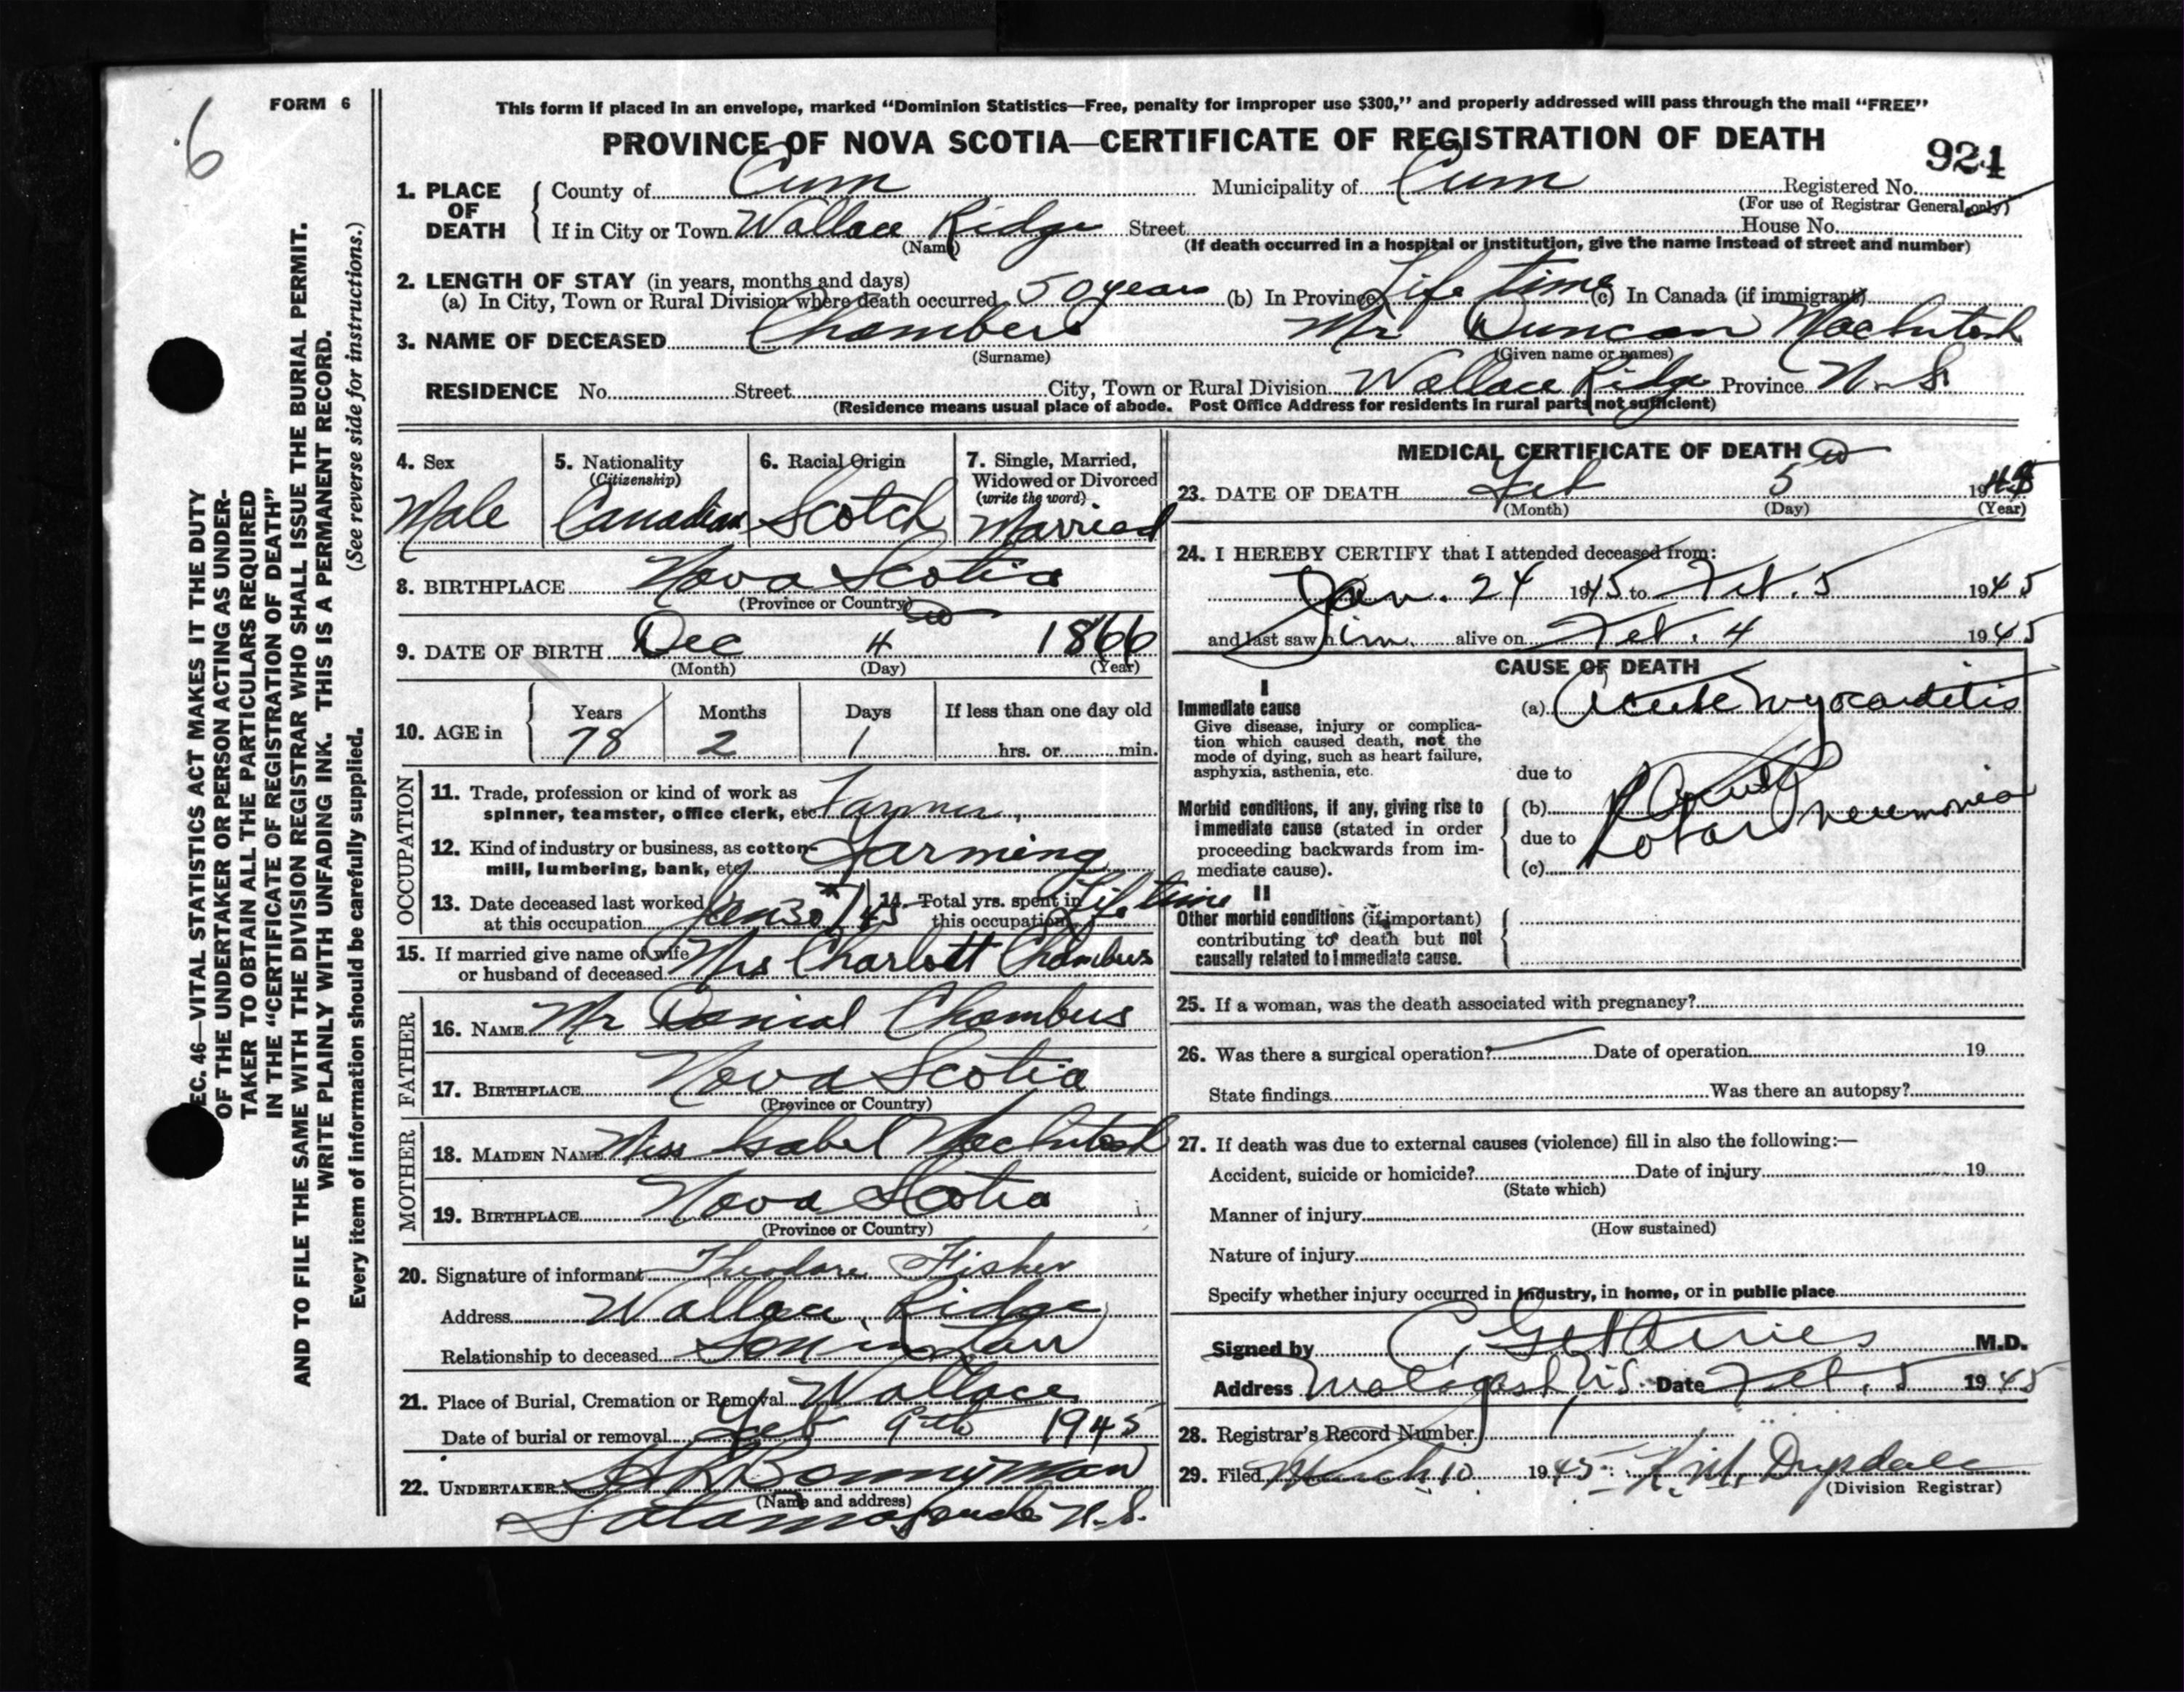 6
FORM 6
This form if placed in an envelope, marked “Dominion Statistics—Free, penalty for improper use $300,” and properly addressed will pass through the mail “FREE”
PROVINCE OF NOVA SCOTIA—CERTIFICATE OF REGISTRATION OF DEATH
924
1. PLACE OF DEATH
County of Cum Municipality of Cum Registered No.
(For use of Registrar General only)
If in City or Town Wallace Ridge Street House No.
(Name) (If death occurred in a hospital or institution, give the name instead of street and number)
2. LENGTH OF STAY (in years, months and days)
(a) In City, Town or Rural Division where death occurred 50 years (b) In Province Life time (c) In Canada (if immigrant)
3. NAME OF DECEASED Chambers Mr Duncan MacIntosh
(Surname) (Given name or names)
RESIDENCE No. Street City, Town or Rural Division Wallace Ridge Province N. S.
(Residence means usual place of abode. Post Office Address for residents in rural parts not sufficient)
4. Sex 5. Nationality 6. Racial Origin 7. Single, Married,
(Citizenship) Widowed or Divorced
(write the word)
Male Canadian Scotch Married
8. BIRTHPLACE Nova Scotia
(Province or Country)
9. DATE OF BIRTH Dec 4 1866
(Month) (Day) (Year)
10. AGE in Years Months Days If less than one day old
78 2 1 hrs. or min.
OCCUPATION
11. Trade, profession or kind of work as
spinner, teamster, office clerk, etc. Farmer
12. Kind of industry or business, as cotton-
mill, lumbering, bank, etc. Farming
13. Date deceased last worked 14. Total yrs. spent in
at this occupation Jan 30/45 this occupation Life time
15. If married give name of wife
or husband of deceased Mrs Charlott Chambers
FATHER
16. NAME Mr Danial Chambers
17. BIRTHPLACE Nova Scotia
(Province or Country)
MOTHER
18. MAIDEN NAME Miss Isabel MacIntosh
19. BIRTHPLACE Nova Scotia
(Province or Country)
20. Signature of informant Theodore Fisher
Address Wallace Ridge
Relationship to deceased Son in Law
21. Place of Burial, Cremation or Removal Wallace
Date of burial or removal Feb 9th 1945
22. UNDERTAKER Bonnyman
(Name and address)
Tatamagouche N.S.
MEDICAL CERTIFICATE OF DEATH
23. DATE OF DEATH Feb 5 1945
(Month) (Day) (Year)
24. I HEREBY CERTIFY that I attended deceased from:
Jan. 24 1945 to Feb. 5 1945
and last saw him alive on Feb. 4 1945
CAUSE OF DEATH
I
Immediate cause
Give disease, injury or complica-
tion which caused death, not the
mode of dying, such as heart failure,
asphyxia, asthenia, etc.
(a) Acute Myocarditis
due to
Morbid conditions, if any, giving rise to
immediate cause (stated in order
proceeding backwards from im-
mediate cause).
(b) Acute
due to Lobar Pneumonia
(c)
II
Other morbid conditions (if important)
contributing to death but not
causally related to immediate cause.
25. If a woman, was the death associated with pregnancy?
26. Was there a surgical operation? Date of operation 19
State findings Was there an autopsy?
27. If death was due to external causes (violence) fill in also the following:—
Accident, suicide or homicide? Date of injury 19
(State which)
Manner of injury
(How sustained)
Nature of injury
Specify whether injury occurred in industry, in home, or in public place
Signed by M.D.
Address Malagash N.S. Date Feb. 5 1945
28. Registrar's Record Number 1
29. Filed March 10 1945 Drysdale
(Division Registrar)
EC. 46—VITAL STATISTICS ACT MAKES IT THE DUTY
OF THE UNDERTAKER OR PERSON ACTING AS UNDER-
TAKER TO OBTAIN ALL THE PARTICULARS REQUIRED
IN THE “CERTIFICATE OF REGISTRATION OF DEATH”
AND TO FILE THE SAME WITH THE DIVISION REGISTRAR WHO SHALL ISSUE THE BURIAL PERMIT.
WRITE PLAINLY WITH UNFADING INK. THIS IS A PERMANENT RECORD.
Every item of information should be carefully supplied. (See reverse side for instructions.)